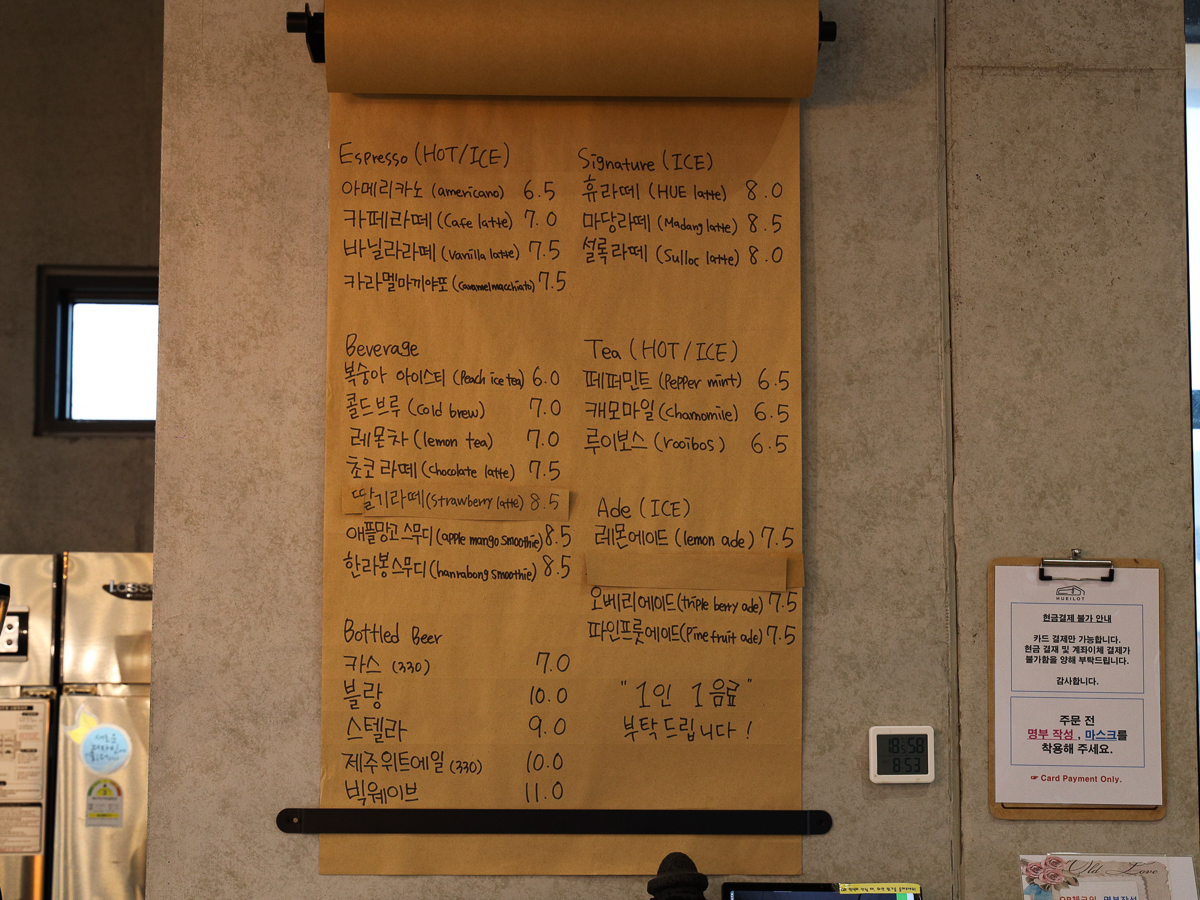 Espresso (HOT/ICE)
아메리카노 (americano) 6.5
카페라떼 (Cafe latte) 7.0
바닐라라떼 (Vanilla latte) 7.5
카라멜마끼야또 (Caramel macchiato) 7.5
Beverage
복숭아 아이스티 (Peach ice tea) 6.0
콜드브루 (Cold brew) 7.0
레몬차 (lemon tea) 7.0
초코라떼 (Chocolate latte) 7.5
딸기라떼 (Strawberry latte) 8.5
애플망고스무디 (apple mango smoothie) 8.5
한라봉스무디 (hanrabong smoothie) 8.5
Bottled Beer
카스 (330) 7.0
블랑 10.0
스텔라 9.0
제주위트에일 (330) 10.0
빅웨이브 11.0
Signature (ICE)
휴라떼 (HUE latte) 8.0
마당라떼 (Madang latte) 8.5
설록라떼 (Sulloc latte) 8.0
Tea (HOT/ICE)
페퍼민트 (Pepper mint) 6.5
캐모마일 (Chamomile) 6.5
루이보스 (rooibos) 6.5
Ade (ICE)
레몬에이드 (lemon ade) 7.5
오베리에이드 (triple berry ade) 7.5
파인프룻에이드 (Pine fruit ade) 7.5
"1인 1음료"
부탁드립니다!
18:58
8.53
HUEILOT
현금결제 불가 안내
카드 결제만 가능합니다.
현금 결재 및 계좌이체 결제가
불가함을 양해 부탁드립니다.
감사합니다.
주문 전
명부 작성, 마스크를
착용해 주세요.
☞ Card Payment Only.
Old Love